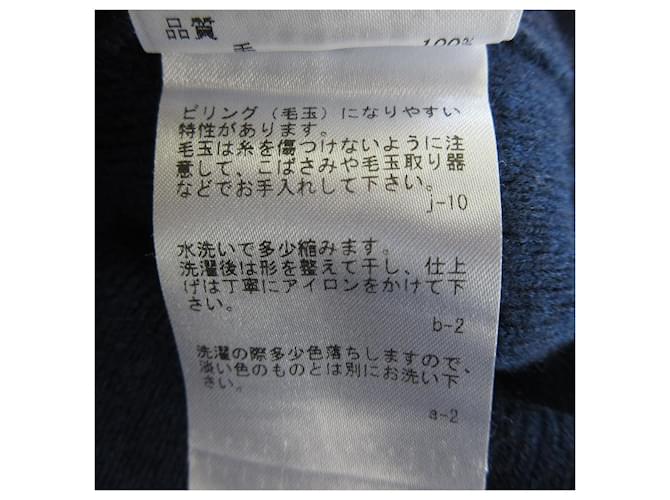 品質
毛 100%
ピリング（毛玉）になりやすい
特性があります。
毛玉は糸を傷つけないように注
意して、こばさみや毛玉取り器
などでお手入れして下さい。
j-10
水洗いで多少縮みます。
洗濯後は形を整えて干し、仕上
げは丁寧にアイロンをかけて下
さい。
b-2
洗濯の際多少色落ちしますので、
淡い色のものとは別にお洗い下
さい。
a-2